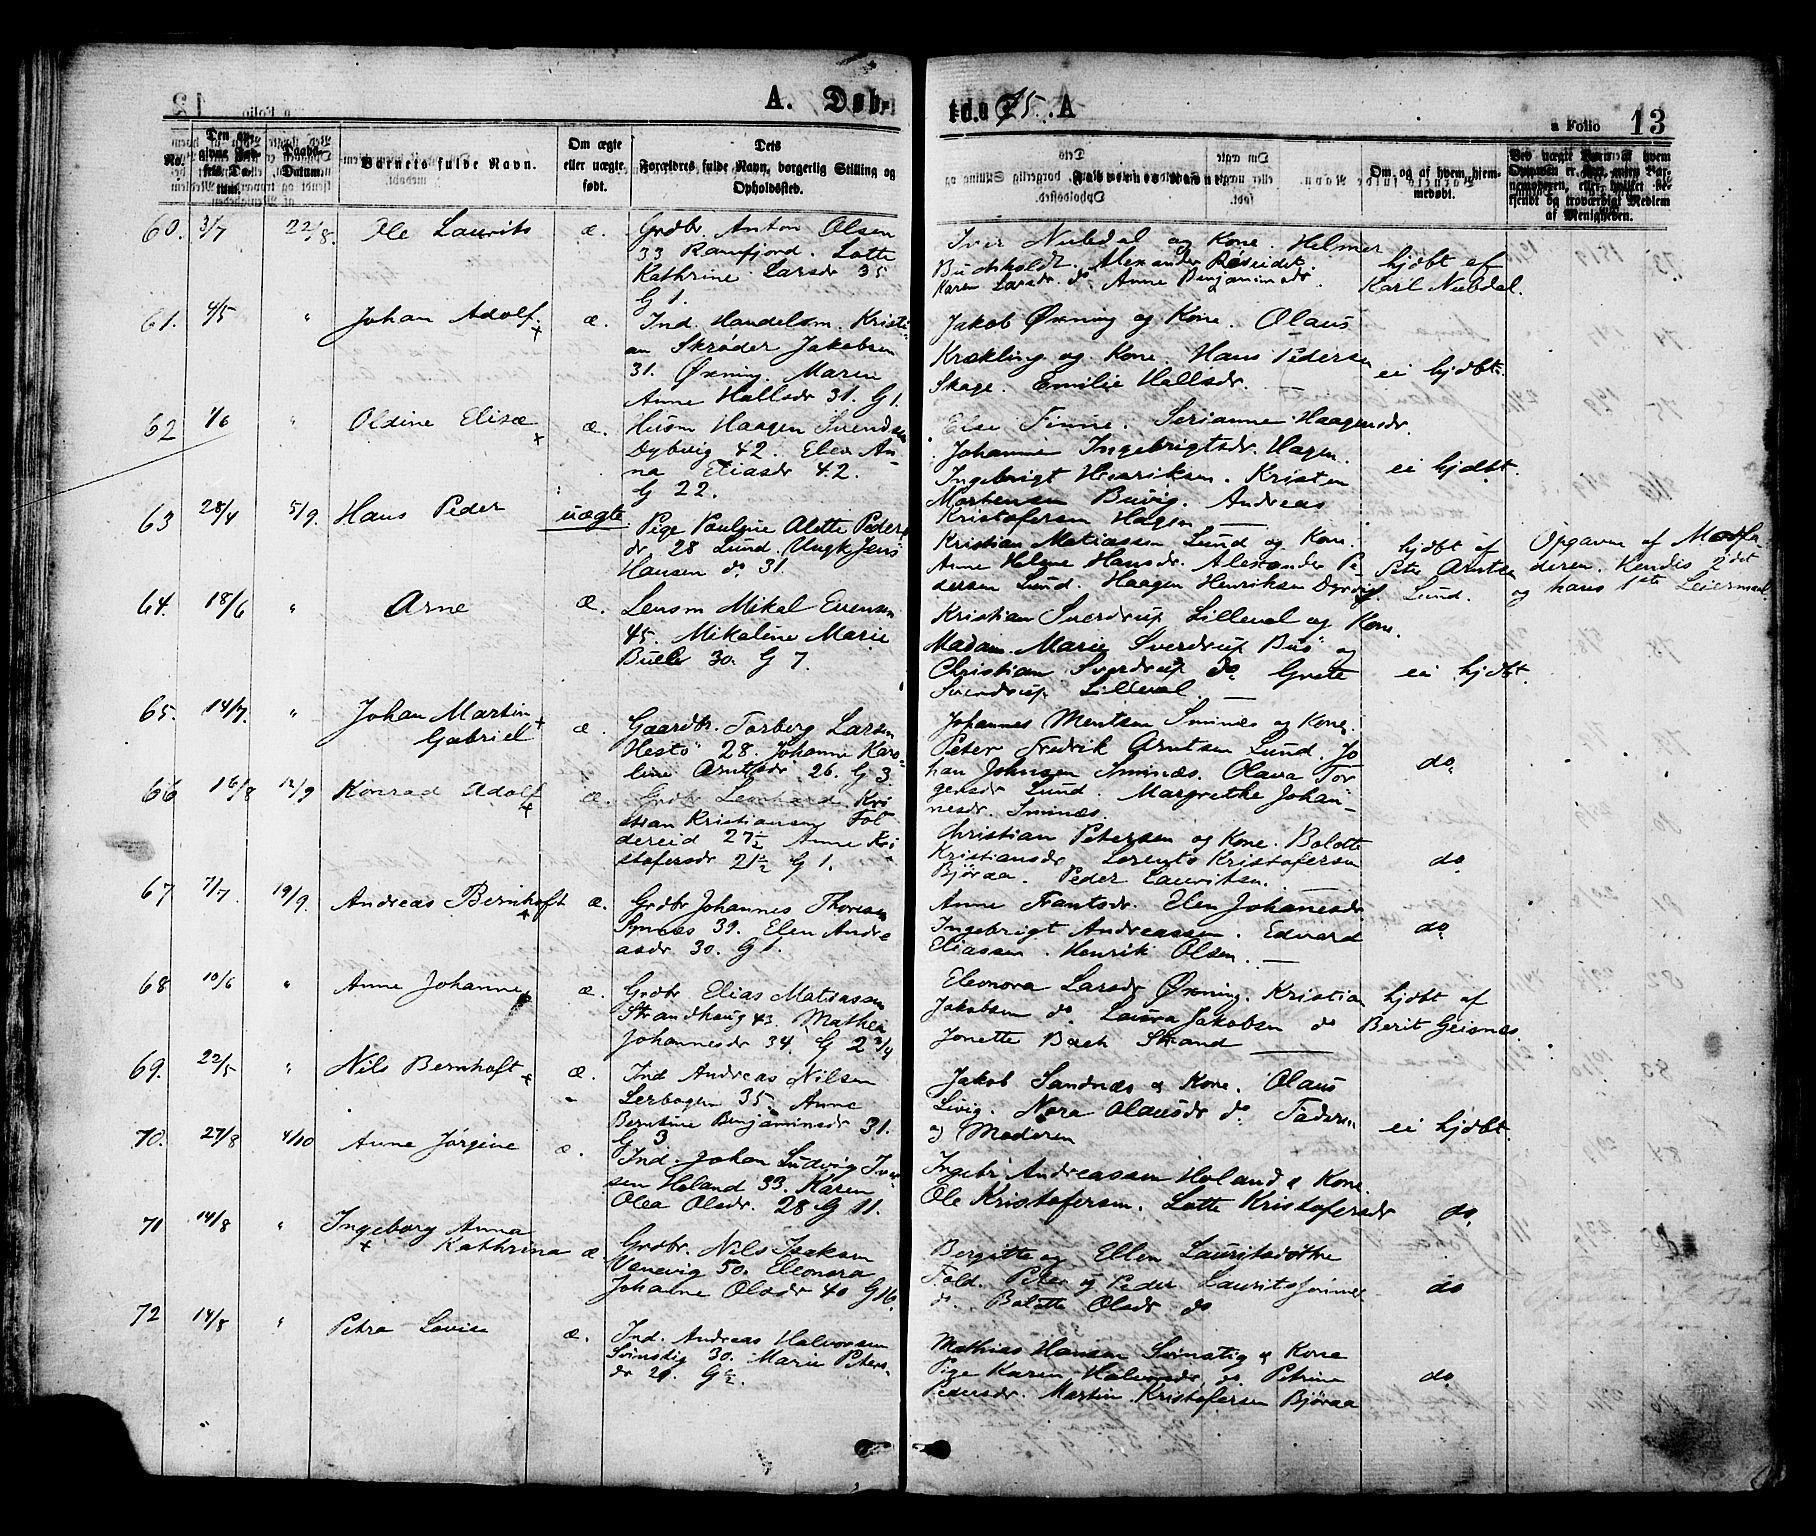 A. Døb-
td. a 75. A
a Folio 13
No.
Den angivne Fødsels Datum.
Daabs-Datum.
Barnets fulde Navn.
Om ægte eller uægte født.
Dets Forældres fulde Navn, borgerlig Stilling og Opholdssted.
Faddernes Navne.
Om, og af hvem, hjemmedøbt.
60. 3/7 22/8. Ole Laurits æ. Grdbr. Anton Olsen
33 Ramfjord. Lotte
Kathrine Larsdr 35
G 1.
Iver Nubdal og Kone. Helmer
Buchholdt. Alexander
Karen Larsdr. do Anne Benjaminsdr.
hjdbt af
Karl Nubdal.
61. 4/5 " Johan Adolf + æ. Ind. Handelsm. Kristi-
an Skrøder Jakobsen
31. Øxning. Maren
Anne Hallsdr 31. G 1.
Jakob Øxning og Kone. Olaus
Krækling og Kone. Hans Pedersen
Skage. Emilie Hallsdr.
ei hjdbt.
62 1/6 " Oldine Elise + æ. Husm Haagen Svendsen
Dybvig 42. Elen An-
na Eliasdr 42.
G 22.
Else Finne. Serianne Haagensdr.
Johanne Ingebrigtsdr. Hagen.
Ingebrigt Henriksen. Kristen
Mortensen Buvig. Andreas
Kristofersen Hagen
ei hjdbt.
63 28/4 5/9. Hans Peder uægte Pige Pauline Alette Peders
dr. 28 Lund. Ungk Jens
Hansen do 31.
Kristian Matiassen Lund og Kone.
Anne Helene Hansdr. Alexander Pe
dersen Lund. Haagen Henriksen Dyrvig
hjdbt af
Peter Arntsen
Lund.
Opgaven af Modfa
deren. Hendes 2det
og hans 1ste Leiermaal.
64. 18/6 " Arne æ. Lensm Mikal Evensen
45. Mikaline Marie
Buller 30. G 7.
Kristian Sverdrup Lilleval og Kone.
Madam Marie Sverdrup Buö og
Christian Sverdrup do Grete
Sverdrup Lilleval.
ei hjdbt.
65. 14/7. " Johan Martin +
Gabriel æ. Gaardbr. Torberg Larsen
Hestö 28. Johanne Karo-
line Arntsdr. 26. G 3
Johannes Mentsen Sminæs og Kone.
Peter Fredrik Arntsen Lund. Jo
han Johnsen Sminæs. Olava Tor
gersdr Lund. Margrethe Johan-
nesdr. Sminæs.
do.
66 16/8 12/9 Konrad Adolf + æ. Grdbr Leonhard Kri
stian Kristiansen Fol-
dereid 27 1/2 Anne Kri
stofersdr 21 1/2 G 1.
Christian Petersen og Kone. Bolotte
Kristiansdr Lorents Kristofersen
Björaa. Peder Lauritsen.
do
67 7/7 19/9. Andreas Bernhoft + æ. Grdbr Johannes Thoresen
39. Elen Andre
asdr. 30. G 1.
Anne Frantsdr. Elen Johanesdr
Ingebrigt Andreassen. Edvard
Eliassen. Henrik Olsen.
do.
68 10/6 " Anne Johanne + æ. Grdbr Elias Matiassen
Strandhaug 43. Mathea
Johannesdr. 34. G 2 3/4
Eleonora Larsdr Øxning. Kristian
Jakobsen do. Laura Jakobsen do
Jonette Bach Strand
hjdbt af
Berit Geisnes
69. 22/5 " Nils Bernhoft + æ. Ind Andreas Nilsen
Lerbogen 35. Anne
Berntine Benjaminsdr. 31.
G 3
Jakob Sandnæs & Kone. Olaus
Livig. Nora Olausdr do Faderen
og Moderen
ei hjdbt.
70. 27/8 4/10 Anne Jørgine æ. Ind. Johan Ludvig Iver
sen Høland 33. Karen
Olea Olsdr. 28 G 11.
Ingebr Andreassen Høland & Kone.
Ole Kristofersen. Lotte Kristofersdr
do.
71 14/8 " Ingeborg Anna
+ Kathrina æ. Grdbr. Nils Isaksen
Vanevig 50. Eleonora
Johanne Olsdr 40 G 16.
Bergitte og Ellen Lauritsdøtre
Fold. Peter og Peder
do. Bolotte Olsdr do
do
72 14/8 " Petra Lovise æ. Ind. Andreas Halvorsen
Svinstig 30. Marie Peters-
dr 21. G 1/2.
Mathias Hansen Svinstig & Kone
Pige Karen Halvorsdr. do. Petrine
Pedersdr. Martin Kristofersen Björaa
do